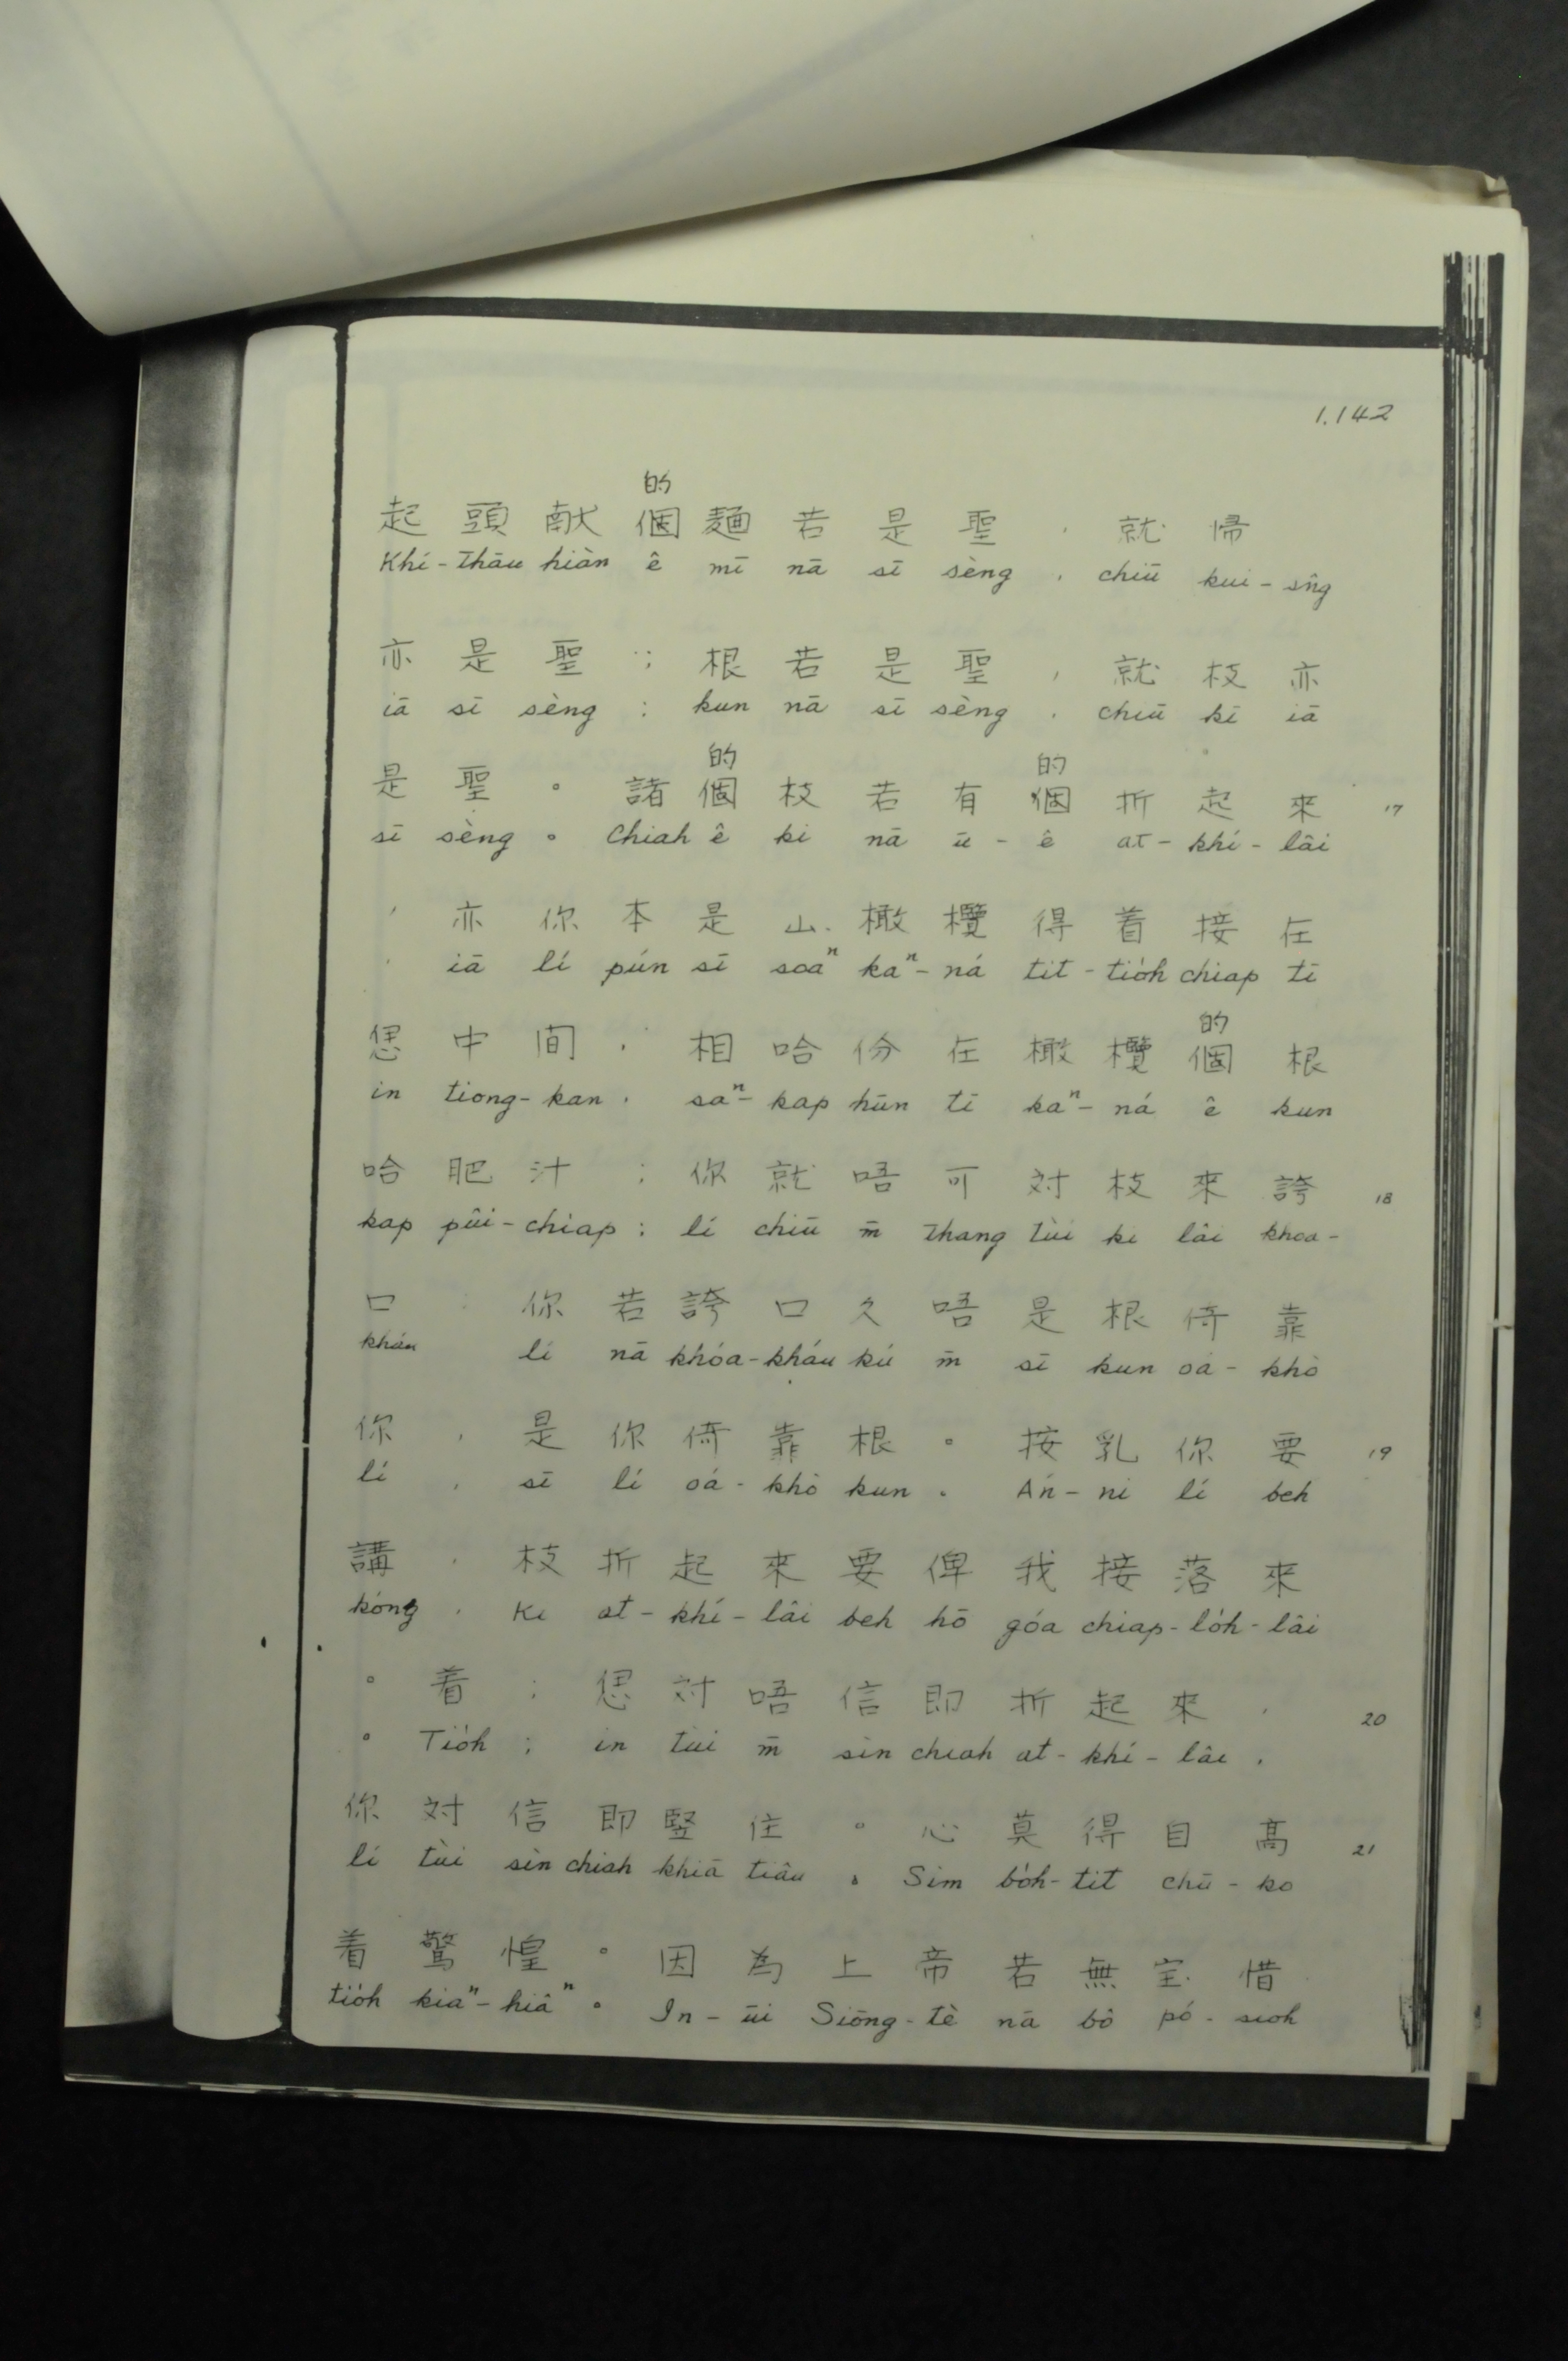 1.142
的
起頭献個麵若是聖,就帰
Khí-thâu hiàn ê mī nā sī sèng, chiū kui-sn̂g
亦是聖;根若是聖,就枝亦
iā sī sèng; kun nā sī sèng, chiū ki iā
的 的
是聖。諸個枝若有個折起來 17
sī sèng. Chiah ê ki nā ū-ê at-khí-lâi
,亦你本是山橄欖得着接在
, iā lí pún sī soaⁿ kaⁿ-ná tit-tio̍h chiap tī
的
恁中間,相哈份在橄欖個根
in tiong-kan, saⁿ-kap hūn tī kaⁿ-ná ê kun
哈肥汁;你就唔可対枝來誇 18
kap pûi-chiap; lí chiū m̄ thang tùi ki lâi khoa-
口:你若誇口久唔是根倚靠
kháu lí nā khóa-kháu kú m̄ sī kun oá-khò
你,是你倚靠根。按乳你要 19
lí, sī lí oá-khò kun. Án-ni lí beh
講,枝折起來要俾我接落來
kóng, Ki at-khí-lâi beh hō góa chiap-lo̍h-lâi
。着;恁対唔信即折起來, 20
。Tio̍h; in tùi m̄ sìn chiah at-khí-lâi,
你対信即竪住。心莫得自高 21
lí tùi sìn chiah khiā tiâu. Sim bo̍h-tit chū-ko
着驚惶。因為上帝若無宝惜
tio̍h kiaⁿ-hiâⁿ. In-ūi Siōng-tè nā bô pó-sioh